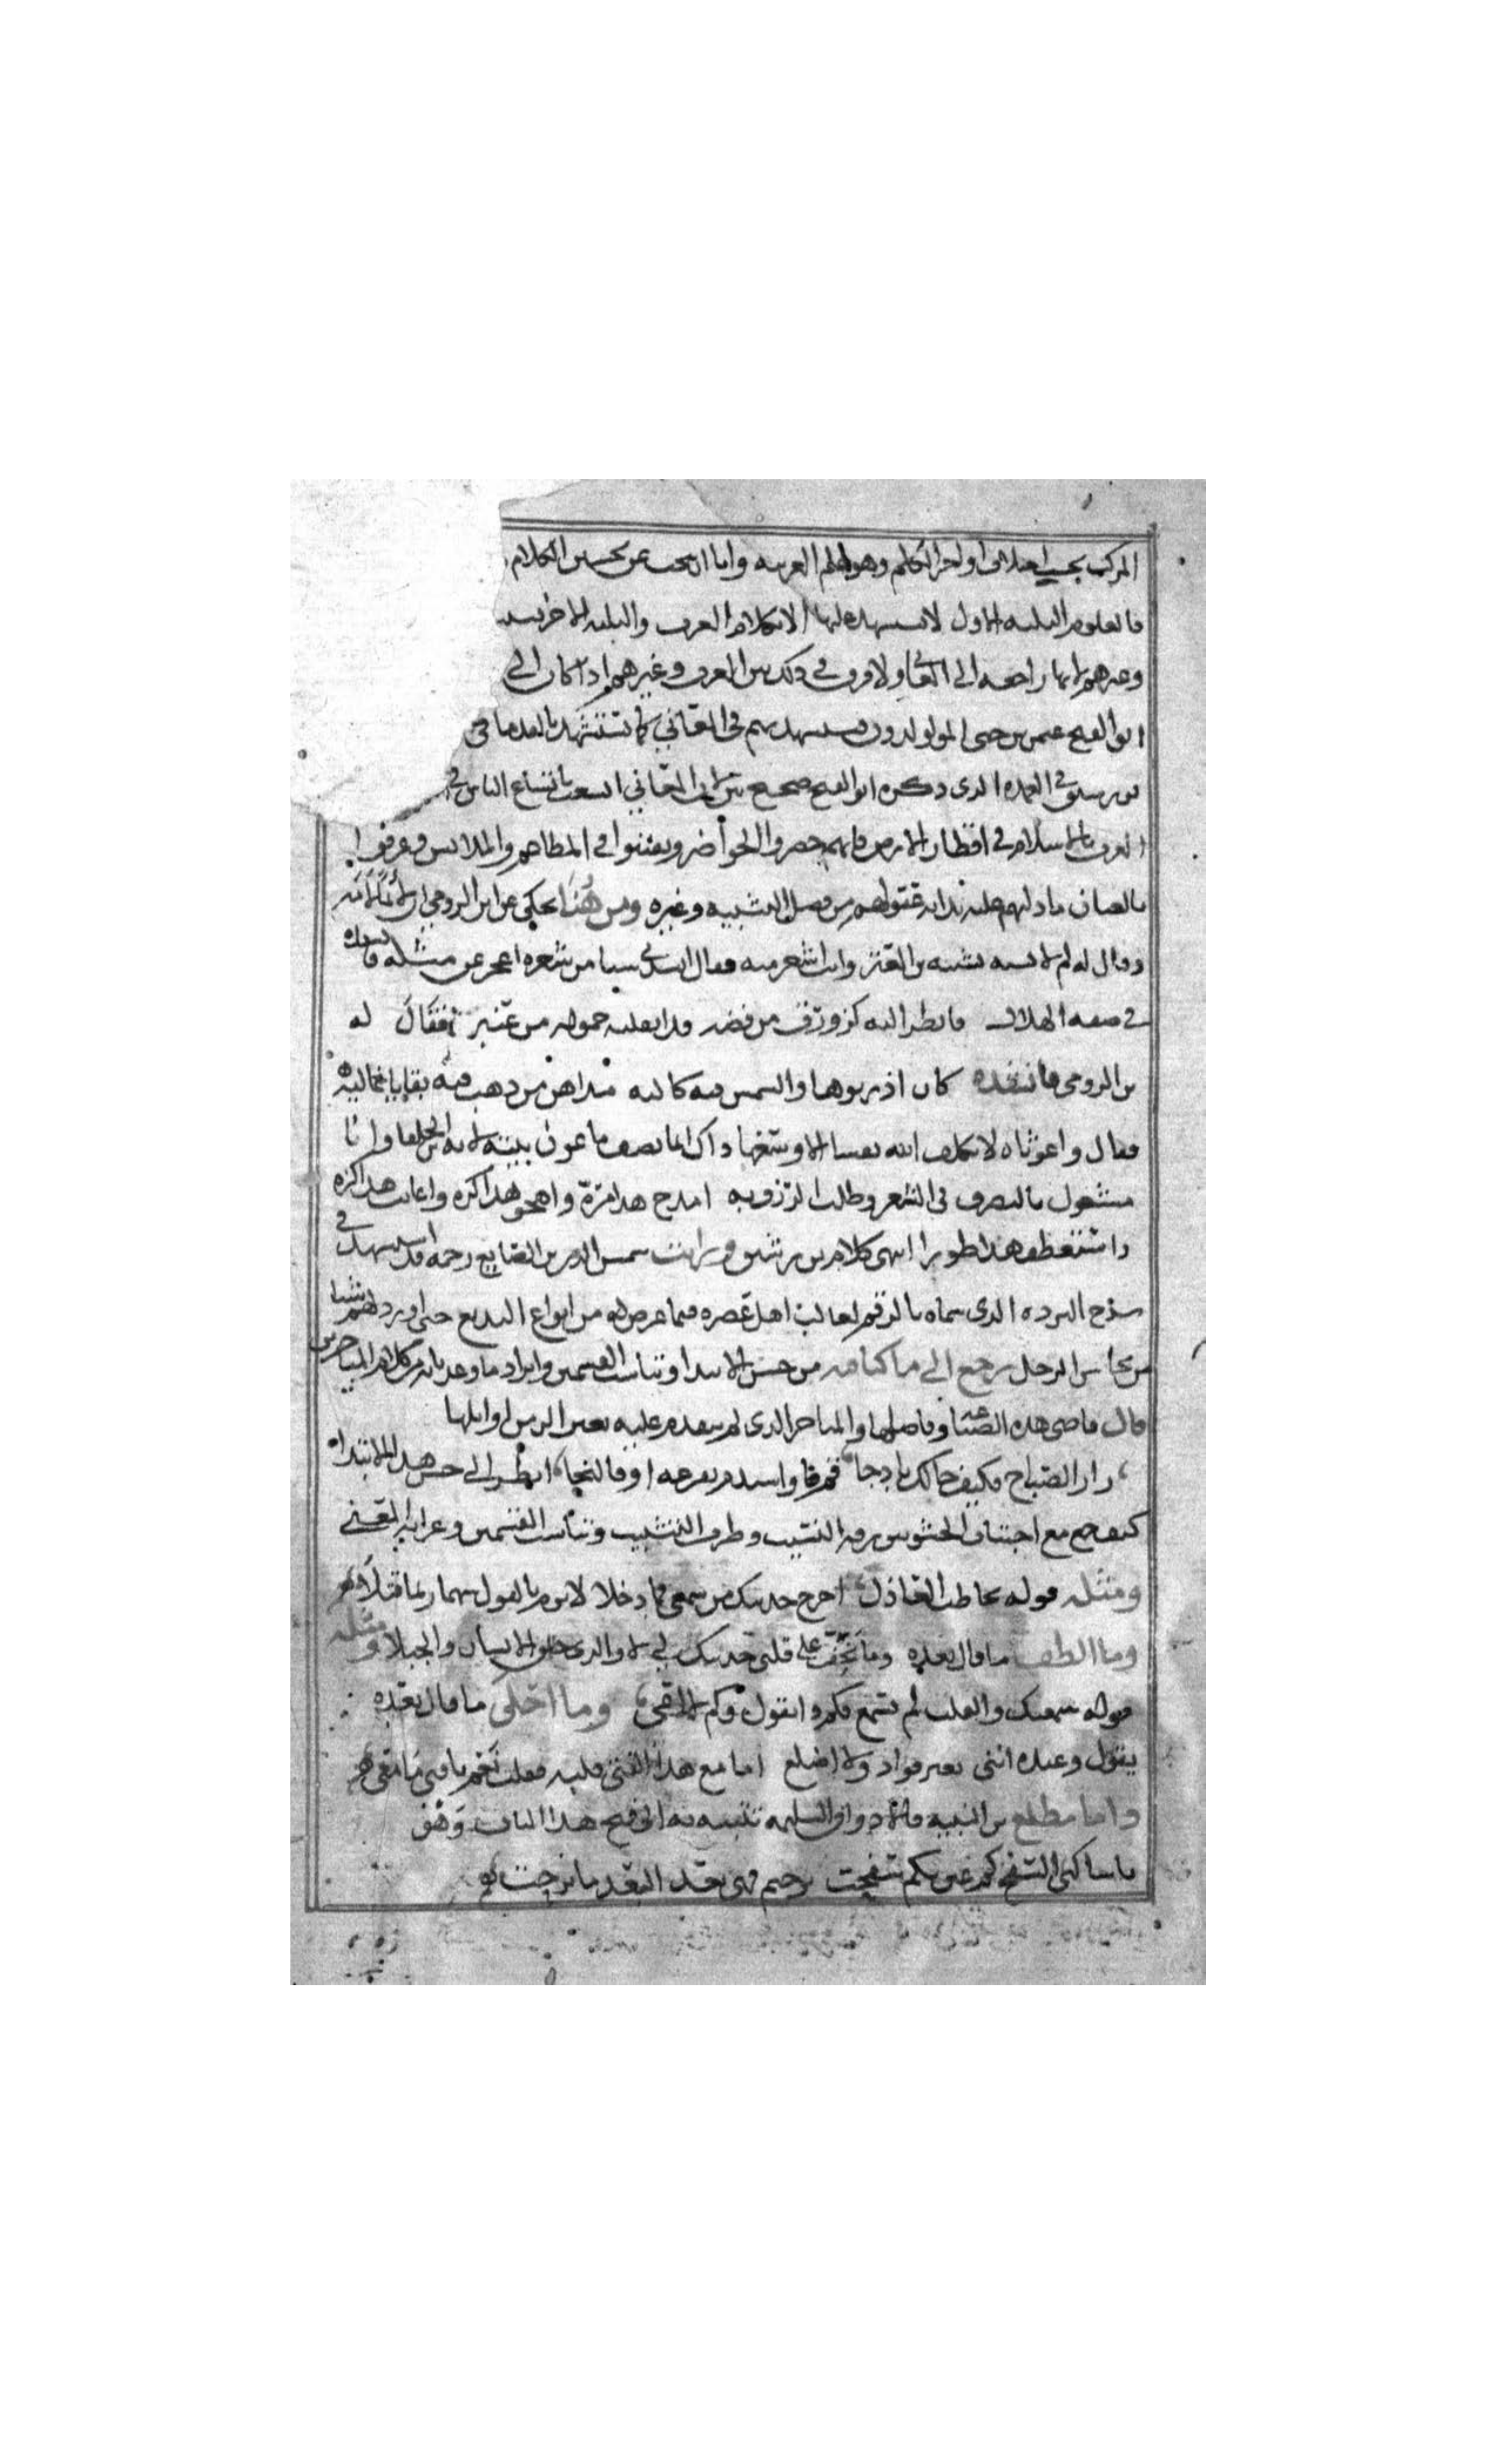 المركب بحسب اختلاف اواخر الكلم وهو علم العربيه واما ان يبحث عن تحسين الكلام
فالعلوم الثلثه الاول لا يستشهد عليها الا بكلام العرب والثلثه الاخر يستشهد
وغيرهم لانها راجعه الى المعاني ولا فرق في ذلك بين العرب وغيرهم اذا كان الى
ابو الفتح عثمن بن جنى المولدون يستشهد بهم في المعاني كما تستشهد بالقدما في
بن رشيق في العمده الذى ذكره ابو الفتح صحيح بين لان المعاني اتسعت باتساع الناس في
العرب بالاسلام في اقطار الارض فانهم حضروا الحواضر وتفننوا في المطاعم والملابس وعرفوا
بالعيان ما دلتهم عليه بداية عقولهم من فضل التشبيه وغيره ومن هنا يحكى عن ابن الرومي ان لائما لامه
وقال له لم لا تشبه تشبيه بن المعتز وانت اشعر منه فقال انشدني شيا من شعره اعجز عن مثله فانشده
في صفه الهلال فانظر اليه كزورق من فضه قد اثقلته حموله من عنبر فقال له
بن الرومي فانشده كان اذريونها والشمس فيه كاليه مداهن من ذهب فيه بقايا غاليه
فقال واغوثاه لا يكلف الله نفسا الا وسعها ذاك انما يصف ماعون بيته لانه بن الخلفا وانا
مشغول بالتصرف في الشعر وطلب الرزق به امدح هذا مرة واهجو هذا كره واعاتب هذا كره
واستعطف هذا طورا انتهى كلام بن رشيق ورايت شمس الدين بن الصايغ رحمه الله قد استشهد في
شرح البرده الذى سماه بالرقم لغالب اهل عصره فيما عرض له من انواع البديع حتى اورد لهم شيا
من محاسن الزجل نرجع الى ما كنا فيه من حسن الابتدا وتناسب القسمين وايراد ما وعدنا به من كلام المتاخرين
قال قاضى هذه الصناعة وفاضلها والمتاخر الذى لم يتقدم عليه بغير الزمن اوايلها
زار الصباح فكيف حالك يا دجا قم فاستتر بفرعه او فالنجا انظر الى حسن هذا الابتداء
كيف جمع مع اجتناب الحشو بين رقه النسيب وطرف التشبيب وتناسب القسمين وغرابه المعنى
ومثله قوله يخاطب العاذل اخرج حديثك من سمعى فما دخلا لا ترم بالقول سهما ربما قتلا
وما الطف ما قال بعده وما يخف على قلبى حديثك لي لا والذى خلق الانسان والجبلا ومثله
قوله سمعتك والقلب لم يسمع فكم ذا تقول وكم لا اعى وما احلى ما قال بعده
يقول وعنده انني بغير فواد ولا اضلع اما مع هذا الفتى قلبه فقلت نعم يا فتى ما معى
واما مطلع بن النبيه فالاذواق السليمه تنتبه به الى فتح هذا الباب وهو
يا ساكنى السفح كم عين بكم سفحت نزحتم فهى بعد البعد ما نزحت